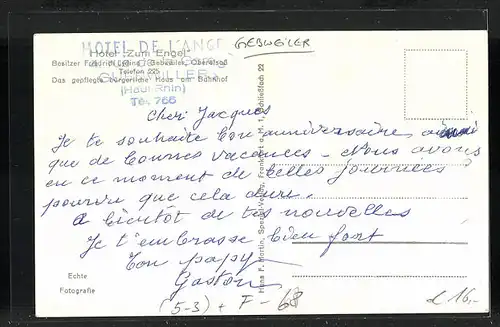 HOTEL DE L'ANGE
GEBWEILER
Hotel "Zum Engel"
Gebweiler, Oberelsaß
Telefon 225
Das gepflegte bürgerliche Haus am Bahnhof
(Haut-Rhin)
Tél. 766
Cheri Jacques
Je te souhaite bon anniversaire ainsi
que de bonnes vacances - Nous avons
en ce moment de belles journées
pourvu que cela dure.
A bientôt de tes nouvelles
Je t'embrasse bien fort
Ton papy
Gaston
Echte
Fotografie
(5-3) + F - 68
16,-
Hans F. Martin, Spezial-Verlag, Frankfurt a. M. 1, Schließfach 22